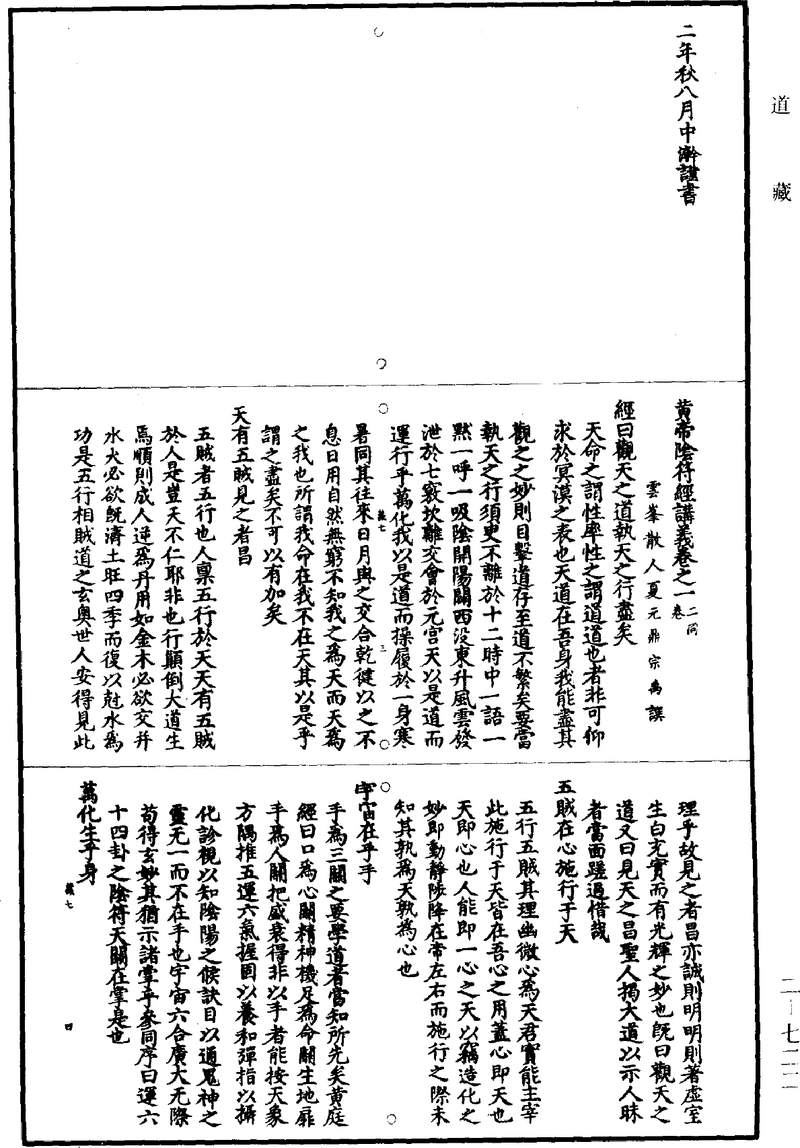 道藏
二年秋八月中澣謹書
黃帝陰符經講義卷之一
二同卷
雲峯散人夏元鼎宗禹譔
經曰觀天之道執天之行盡矣
天命之謂性率性之謂道道也者非可仰
求於冥漠之表也天道在吾身我能盡其
觀之之妙則目擊道存至道不繁矣要當
執天之行須臾不離於十二時中一語一
默一呼一吸陰開陽闢西沒東升風雲發
泄於七竅坎離交會於元宮天以是道而
運行乎萬化我以是道而操履於一身寒
義七
三
暑同其往來日月與之交合乾健以之不
息日用自然無窮不知我之為天而天為
之我也所謂我命在我不在天其以是乎
謂之盡矣不可以有加矣
天有五賊見之者昌
五賊者五行也人稟五行於天天有五賊
於人是豈天不仁耶非也行顛倒大道生
焉順則成人逆為丹用如金木必欲交并
水火必欲既濟土旺四季而復以尅水為
功是五行相賊道之玄奧世人安得見此
理乎故見之者昌亦誠則明明則著虛室
生白充實而有光輝之妙也既曰觀天之
道又曰見天之昌聖人揭大道以示人昧
者當面蹉過惜哉
五賊在心施行于天
五行五賊其理幽微心為天君實能主宰
此施行于天皆在吾心之用蓋心即天也
天即心也人能即一心之天以竊造化之
妙即動靜陟降在常左右而施行之際未
知其孰為天孰為心也
宇宙在乎手
手為三關之要學道者當知所先矣黃庭
經曰口為心關精神機足為命關生地扉
手為人關把盛衰得非以手者能按天象
方隅推五運六氣握固以養和彈指以攝
化診視以知陰陽之候訣目以通鬼神之
靈无一而不在手也宇宙六合廣大无際
苟得玄妙其猶示諸掌乎參同序曰運六
十四卦之陰符天關在掌是也
萬化生乎身
義七
四
二一七二二